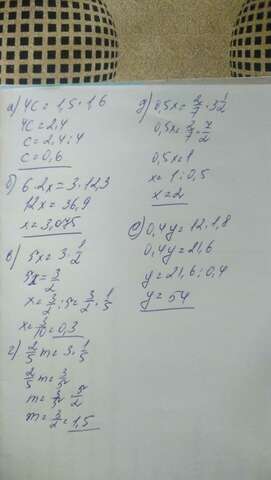 а) 4c = 1,5 · 1,6
4c = 2,4
c = 2,4 : 4
c = 0,6
б) 6 · 2x = 3 · 12,3
12x = 36,9
x = 3,075
в) 5x = 3 · 1/2
5x = 3/2
x = 3/2 : 5 = 3/2 · 1/5
x = 3/10 = 0,3
г) 2/5 m = 3 · 1/5
2/5 m = 3/5
m = 3/5 · 5/2
m = 3/2 = 1,5
д) 0,5x = 2/7 · 3 1/2
0,5x = 2/7 · 7/2
0,5x = 1
x = 1 : 0,5
x = 2
е) 0,4y = 12 · 1,8
0,4y = 21,6
y = 21,6 : 0,4
y = 54